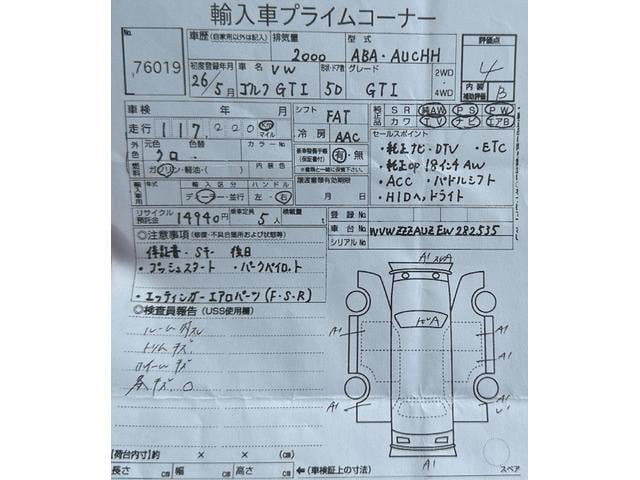 輸入車プライムコーナー
No. 76019
車歴 (自家用以外は記入) 排気量 2000 型式 ABA-AUCHH 評価点 4
初度登録年月 26/5月 車名 VW ゴルフGTI 形状・ドア数 5D グレード GTI 2WD・4WD 内装補助評価 B
車検 年 月 シフト FAT 純正品 SR 純AW PS PW
走行 117,220 Km マイル 冷房 AAC カワ TV ナビ エアB
外色 元色 クロ 色替 カラーNo. 新車整備手帳(保証書付) 有・無
セールスポイント
・純正ナビ・DTV ・ETC
燃料 ガソリン・軽油・( ) 内装色
・純正op 18インチAW
輸入車用 年式 輸入区分 ディーラー・並行 ハンドル 左・右 譲渡書類有効期限 月 日
・ACC ・パドルシフト
・HIDヘッドライト
リサイクル預託金 14940円 乗車定員 5人 積載量 t 登録No.
車台No. WVWZZZAUZEW282535
シリアルNo.
◎注意事項 (修復・不具合箇所および状態等)
保証書・Sキー 後日
・プッシュスタート ・パークパイロット
・エッティンガーエアロパーツ(F・S・R)
◎検査員報告 (USS使用欄)
トリムキズ
ホイールキズ
A1
A1
A1
A1
A1
A1
A1
A1
【荷台内寸】約 × ×
長さ cm 幅 cm 高さ cm ←(車検証上の寸法)
スペア